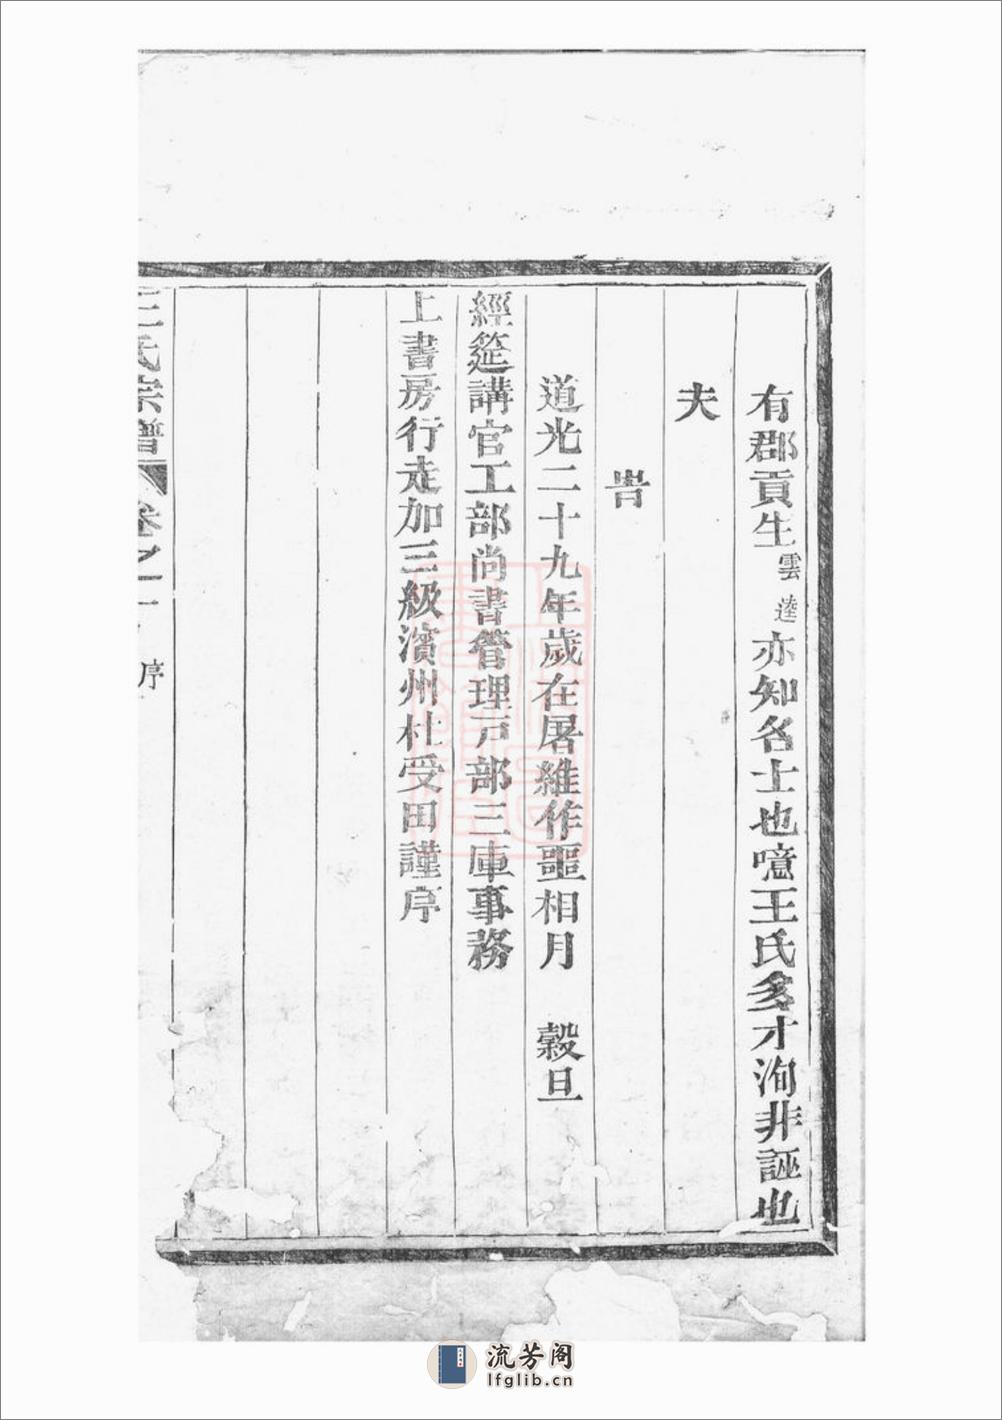 有郡貢生雲逵亦知名士也噫王氏多才洵非誣也
夫
旹
道光二十九年歲在屠維作噩相月　穀旦
經筵講官工部尚書管理戶部三庫事務
上書房行走加三級濱州杜受田謹序
王氏宗譜　卷之一　序
流芳阁
lfglib.cn